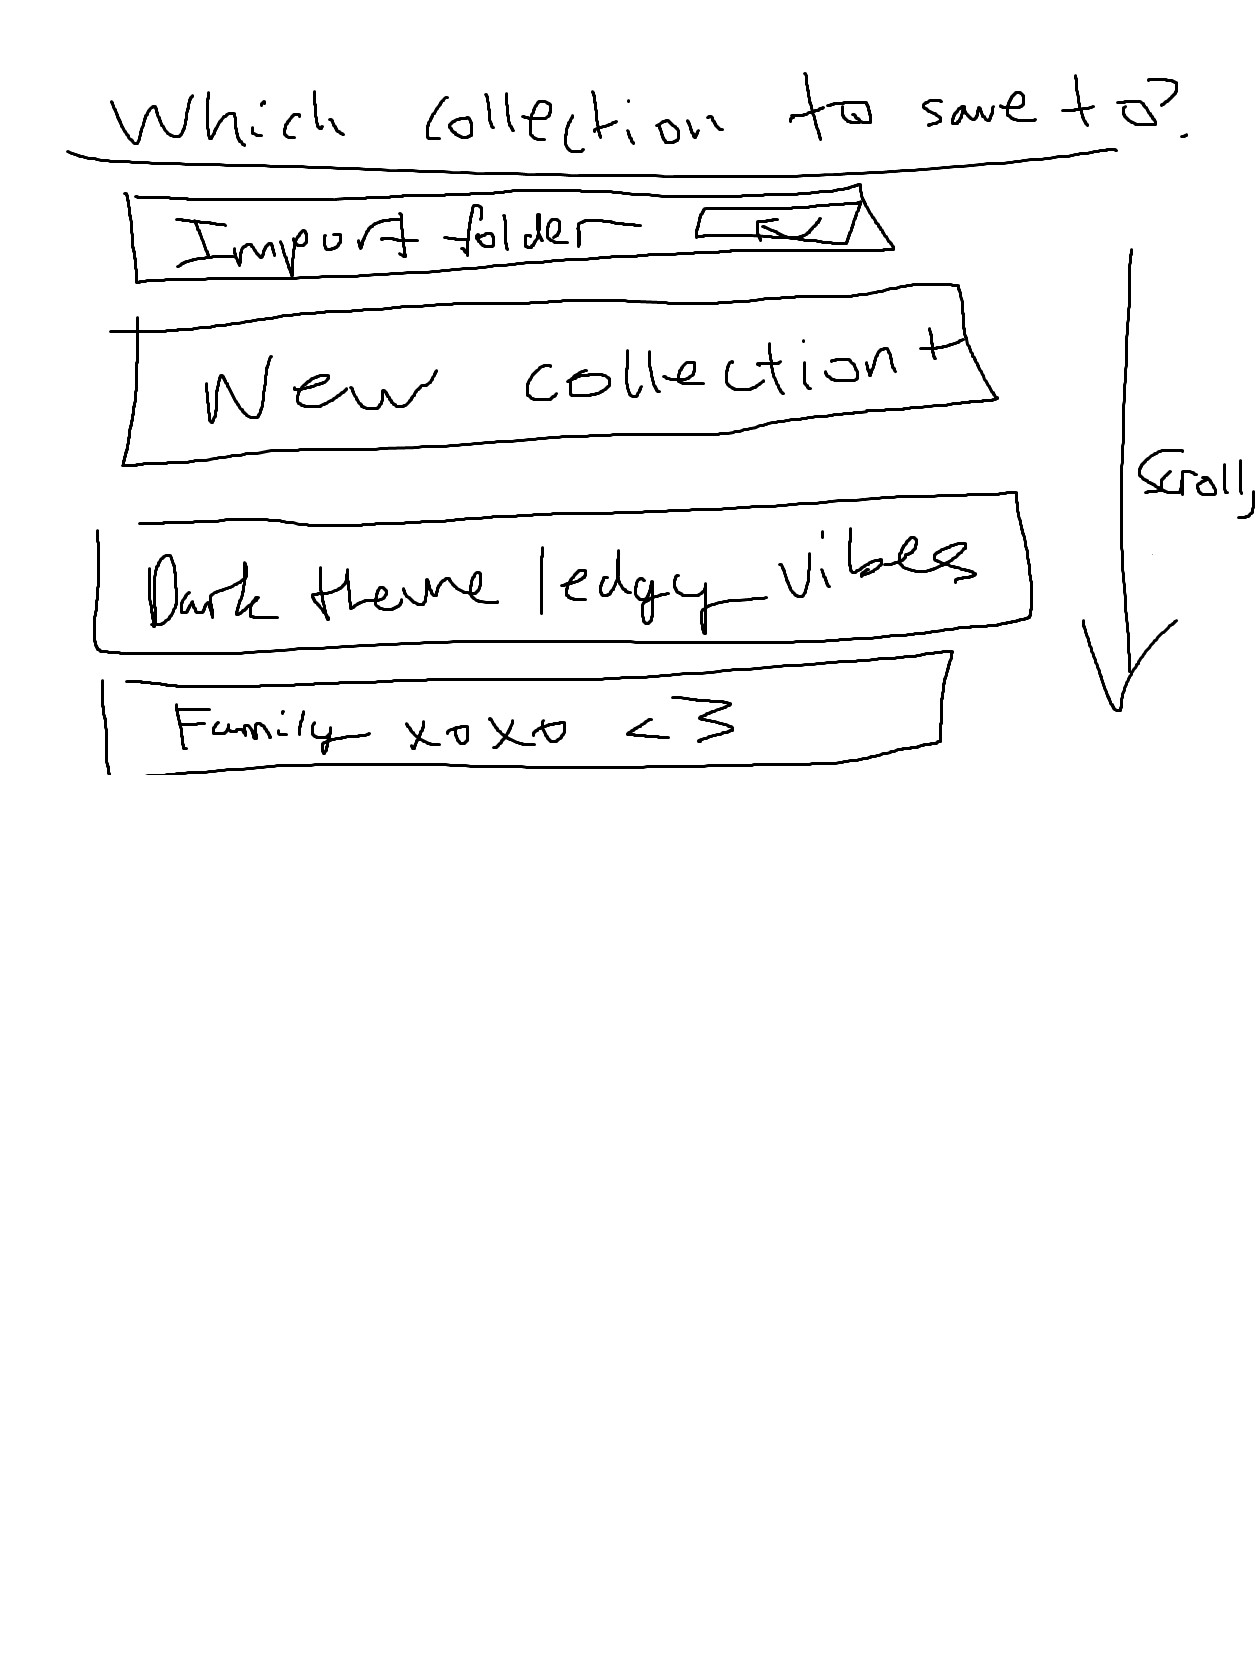 Which collection to save to?
Import folder
New collection +
Scroll
Dark theme / edgy vibes
Family xoxo <3